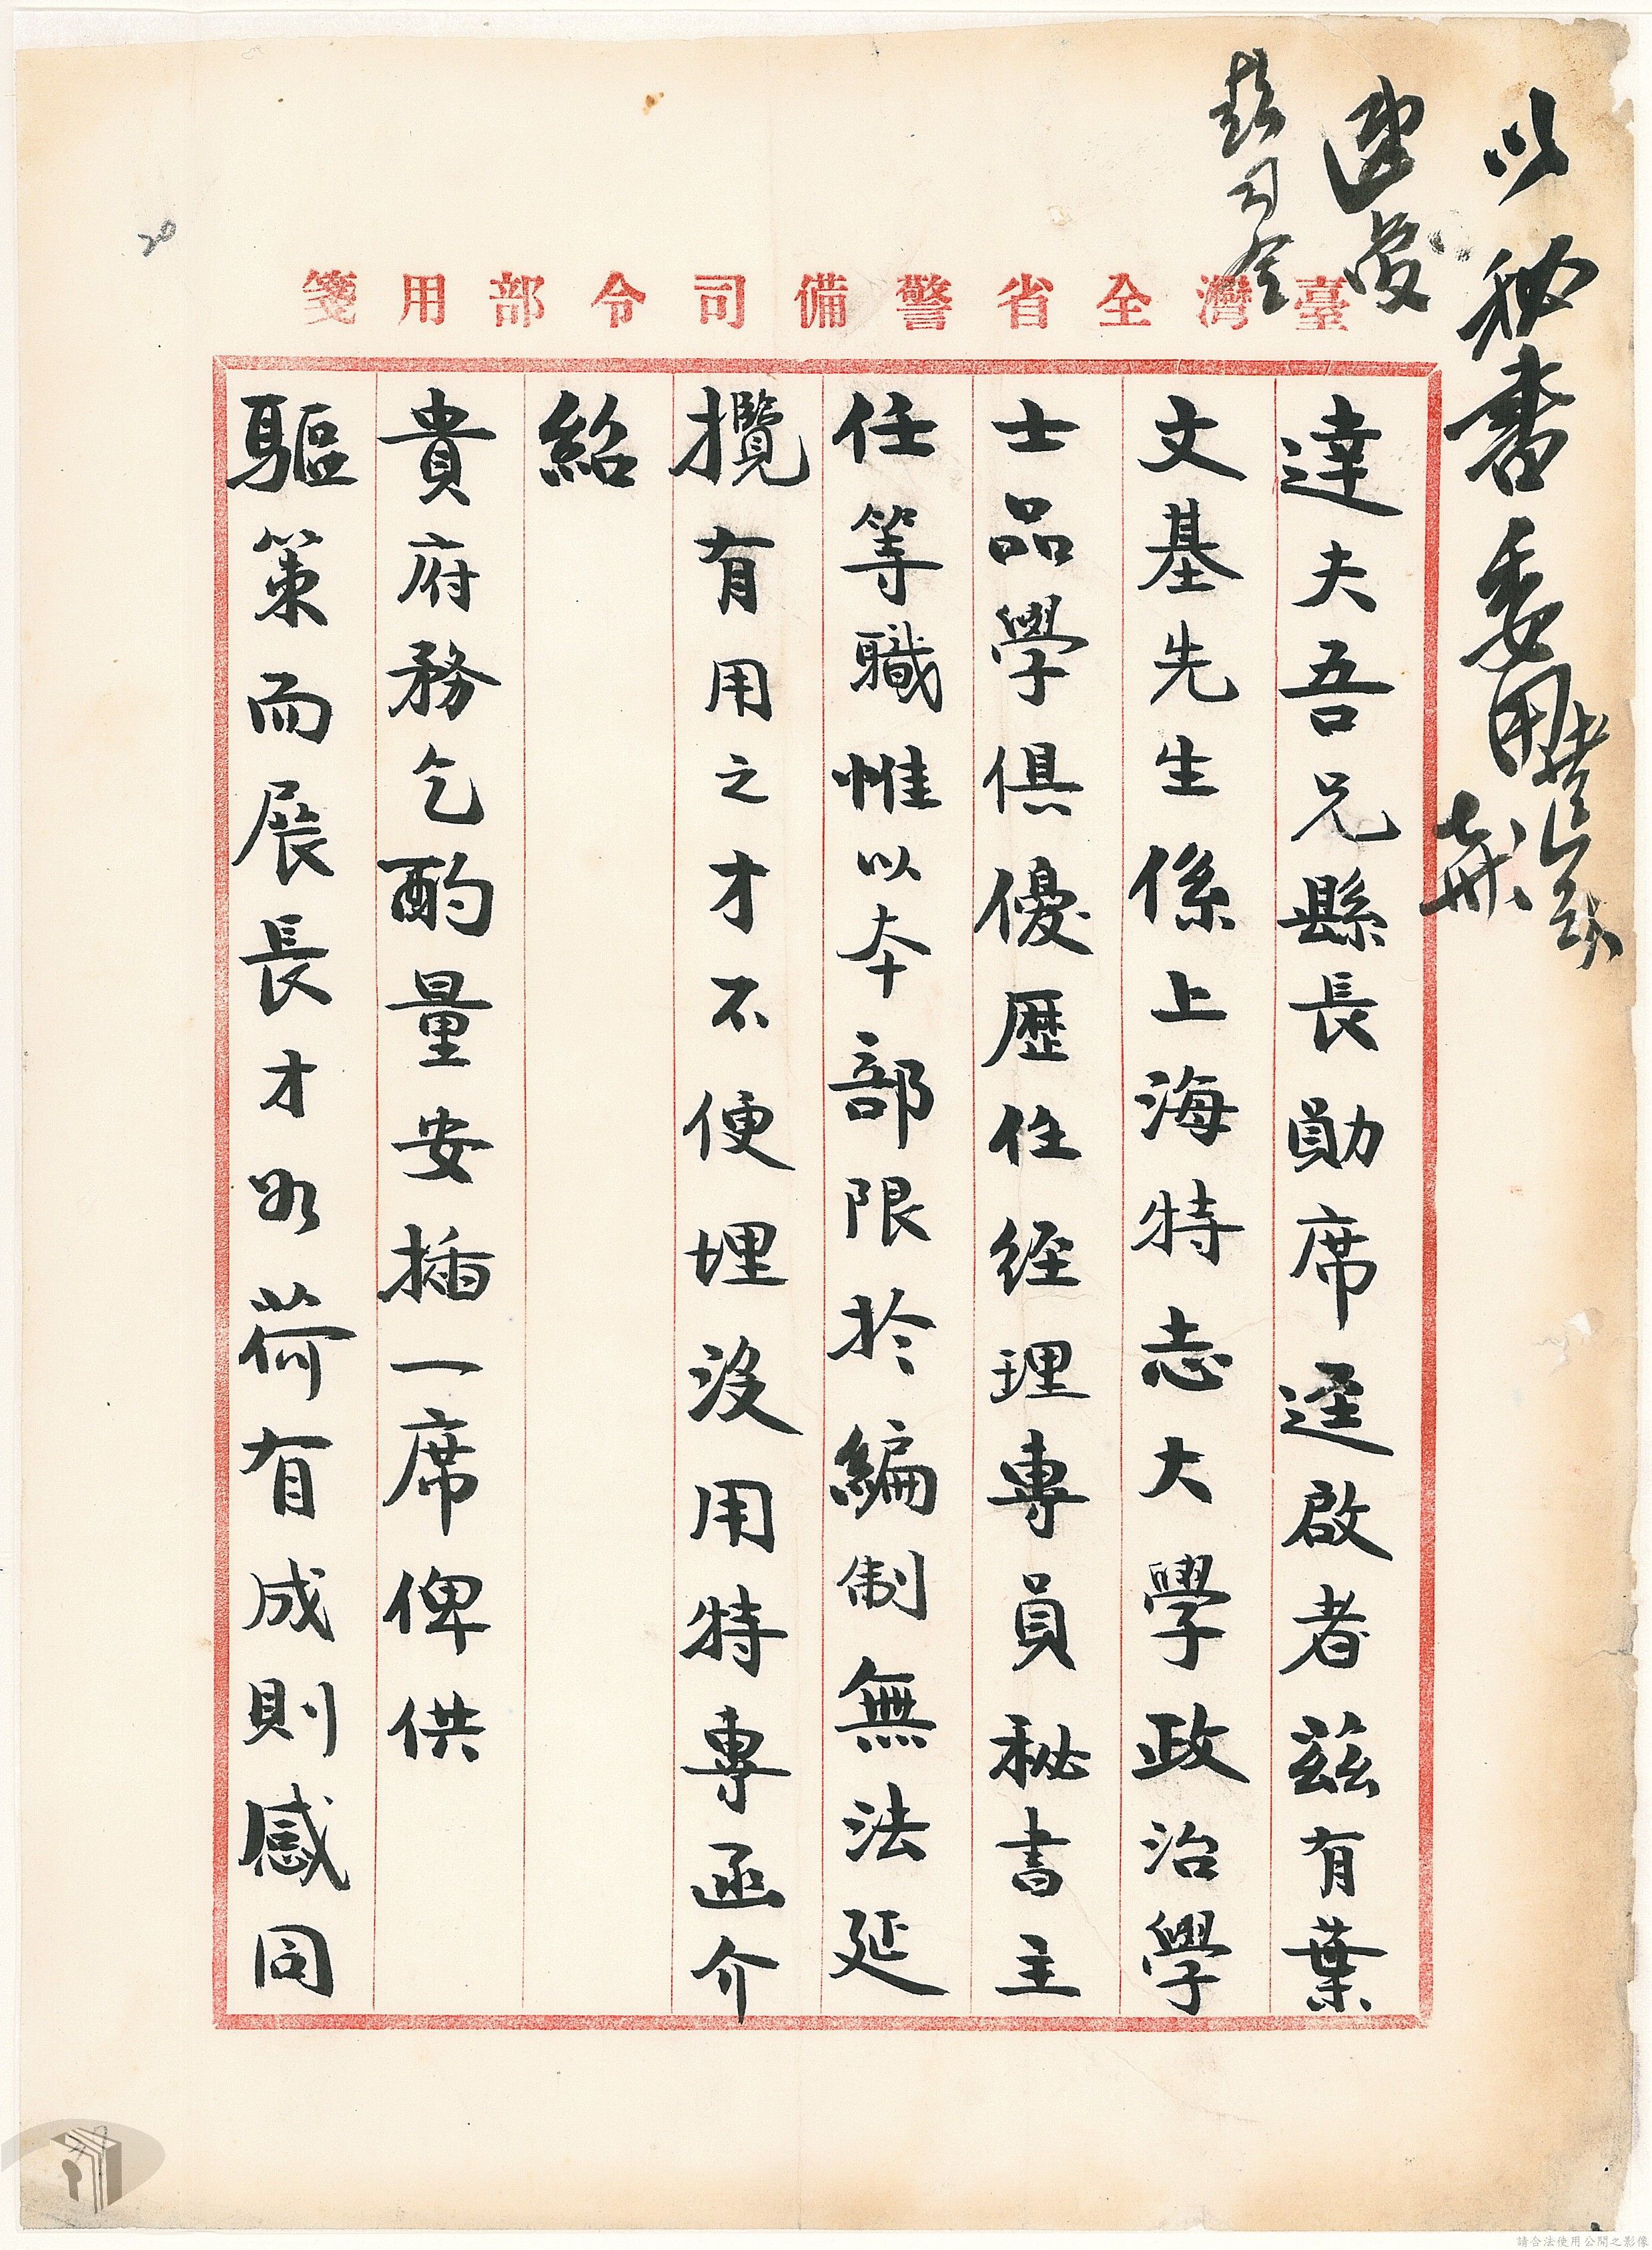 以秘書委用
速覆
彭司令
臺灣全省警備司令部用箋
達夫吾兄縣長勛席逕啟者茲有葉
文基先生係上海特志大學政治學
士品學俱優歷任經理專員秘書主
任等職惟以本部限於編制無法延
攬有用之才不便埋沒用特專函介
紹
貴府務乞酌量安插一席俾供
驅策而展長才如荷有成則感同
20
請合法使用公開之影像